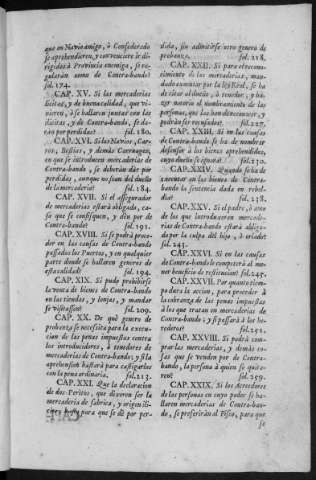 que en Navio amigo, ò Confederado
se aprehendieren, y constare ir di-
rigidos à Provincia enemiga, se re-
gularàn como de Contrabando?
fol. 174.
CAP. XV. Si las mercaderias
licitas, y de buena calidad, que vi-
nieren, ò se hallaren juntas con las
ilicitas, y de Contra-bando, se da-
ràn por perdidas? fol. 180.
CAP. XVI. Si las Navios, Car-
ros, Bestias, y demàs Carruages,
en que se introducen mercaderias de
Contra-bando, se deberàn dàr por
perdidos, aunque no sean del dueño
de la mercaderia? fol. 184.
CAP. XVII. Si el assegurador
de mercaderias estarà obligado, ca-
so que se confisquen, y dèn por de
Contra-bando? fol. 191.
CAP. XVIII. Si se podrà proce-
der en las causas de Contra-bando
passados los Puertos, y en qualquier
parte donde se hallaren generos de
esta calidad? fol. 194.
CAP. XIX. Si pudo prohibirse
la venta de bienes de Contra-bando
en las tiendas, y lonjas, y mandar
se visitassen? fol. 209.
CAP. XX. De què genero de
probança se necessita para la execu-
cion de las penas impuestas contra
los introducidores, ò tenedores de
mercaderias de Contra-bando; y si la
aprehension bastarà para castigarlos
con la pena ordinaria. fol. 213.
CAP. XXI. Que la declaracion
de dos Peritos, que dixeren ser la
mercaderia de fabrica, y origen ili-
cito, basta para que se dè por per-
dida, sin admitirse otro genero de
probança. fol. 218.
CAP. XXII. Si para el reconoci-
miento de las mercaderias, man-
dado executar por la ley Real, se ha
de citar al dueño, ò tenedor, y ha-
zer notorio el nombramiento de las
personas, que las han de reconocer, y
podràn ser recusadas? fol. 227.
CAP. XXIII. Si en las causas
de Contra-bando se ha de nombrar
defensor à los bienes aprehendidos,
cuyo dueño se ignora? fol. 230.
CAP. XXIV. Quando se ha de
executar en los bienes de Contra-
bando la sentencia dada en rebel-
dia? fol. 238.
CAP. XXV. Si el padre, ò amo
de los que introduxeren mercade-
rias de Contra-bando estarà obliga-
do por la culpa del hijo, ò criado?
fol. 243.
CAP. XXVI. Si en las causas
de Contra-bando le competerà al me-
nor beneficio de restitucion? fol. 245.
CAP. XXVII. Por quanto tiem-
po dura la accion, para proceder à
la cobrança de las penas impuestas
à los que tratan en mercaderias de
Contra-bando; y si passarà à los he-
rederos? fol. 251.
CAP. XXVIII. Si podrà com-
prar las mercaderias, y demàs co-
sas que se venden por de Contra-
bando, la persona à quien se quita-
ron? fol. 259.
CAP. XXIX. Si los Acreedores
de las personas en cuyo poder se ha-
llaren mercaderias de Contra-ban-
do, se preferiràn al Fisco, para que
se